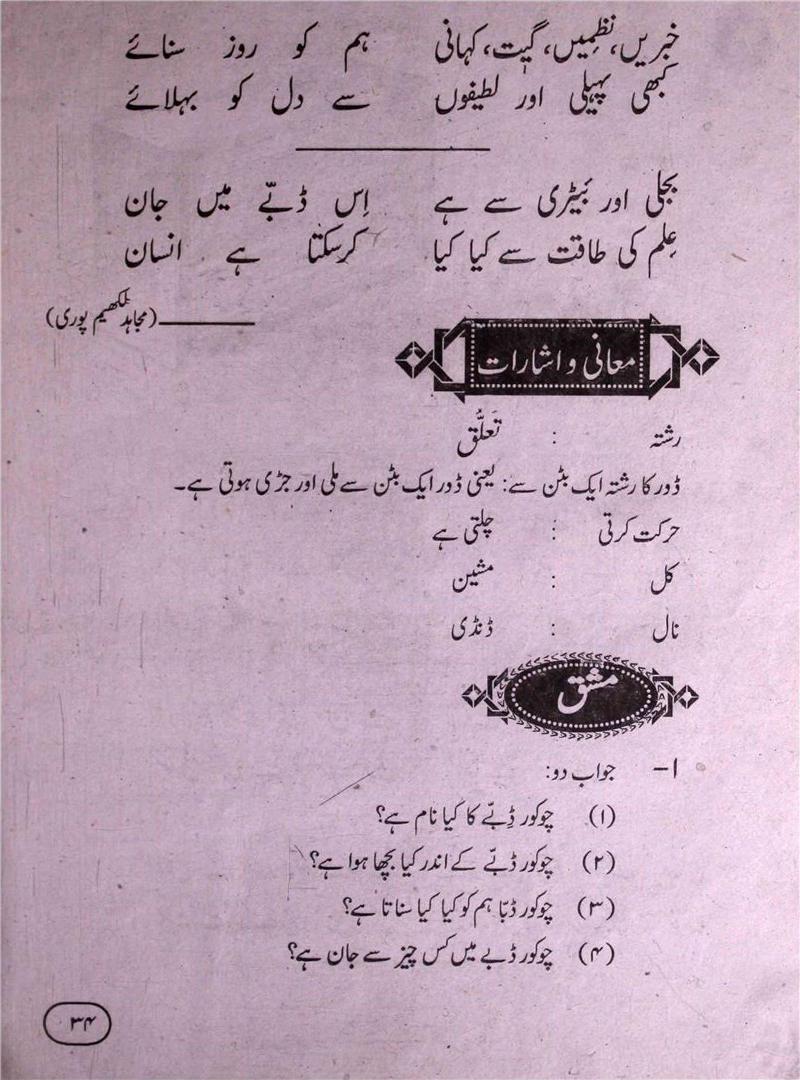 خبریں، نظمیں، گیت، کہانی ہم کو روز سنائے
کبھی پہیلی اور لطیفوں سے دل کو بہلائے
بجلی اور بَیٹری سے ہے اِس ڈبّے میں جان
عِلم کی طاقت سے کیا کیا کرسکتا ہے انسان
(مجاہد لکھیم پوری)
معانی و اشارات
رشتہ : تَعلُّق
ڈور کا رشتہ ایک بٹن سے: یعنی ڈور ایک بٹن سے ملی اور جڑی ہوتی ہے۔
حرکت کرتی : چلتی ہے
کل : مشین
نال : ڈنڈی
مشق
۱- جواب دو:
(۱) چوکور ڈِبّے کا کیا نام ہے؟
(۲) چوکور ڈبّے کے اندر کیا بچھا ہوا ہے؟
(۳) چوکور ڈبّا ہم کو کیا کیا سناتا ہے؟
(۴) چوکور ڈبے میں کس چیز سے جان ہے؟
۳۴